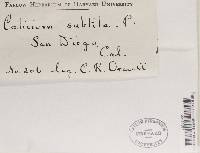 FARLOW HERBARIUM OF HARVARD UNIVERSITY
Calicium subtile. P.
San Diego,
Cal.
No. 206 leg. C. R. Orcutt